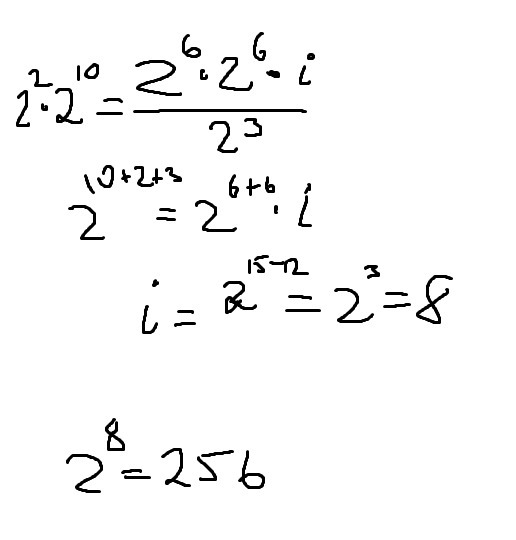 2²·2¹⁰ = (2⁶·2⁶·i)/2³
2¹⁰⁺²⁺³ = 2⁶⁺⁶·i
i = 2¹⁵⁻¹² = 2³ = 8
2⁸ = 256